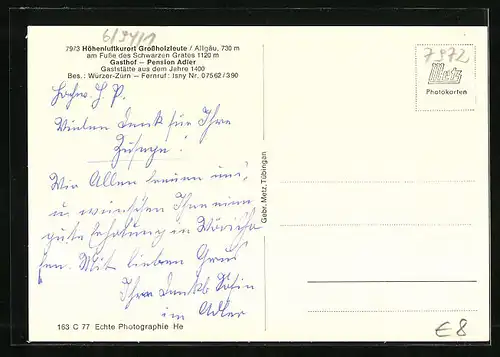 6/94/1
79/3 Höhenluftkurort Großholzleute / Allgäu, 730 m
am Fuße des Schwarzen Grates 1120 m
Gasthof — Pension Adler
Gaststätte aus dem Jahre 1400
Bes.: Würzer-Zürn — Fernruf: Isny Nr. 07562/390
Hochw. H. P.
Vielen Dank für Ihre
Zusage!
Wir Allen freuen uns,
u. wünschen Ihnen eine
gute Erholung in Wörisho
fen. Mit lieben Gruß
Ihre dankb.
im Adler
163 C 77 Echte Photographie He
Gebr. Metz, Tübingen
7972
Metz
Photokarten
€8